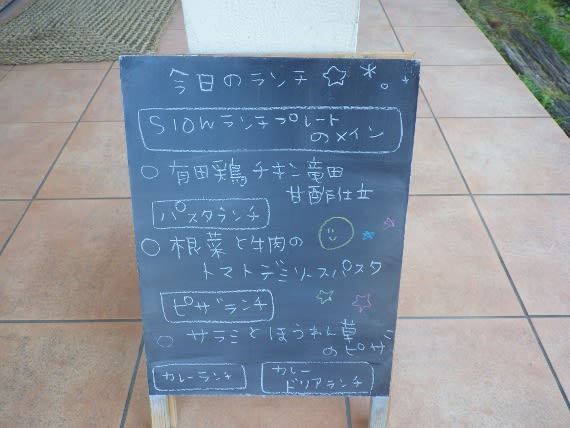 今日のランチ
Slowランチプレート
のメイン
○ 有田鶏チキン竜田
甘酢仕立
パスタランチ
○ 根菜と牛肉の
トマトデミソースパスタ
ピザランチ
○ サラミとほうれん草
のピザ
カレーランチ
カレー
ドリアランチ